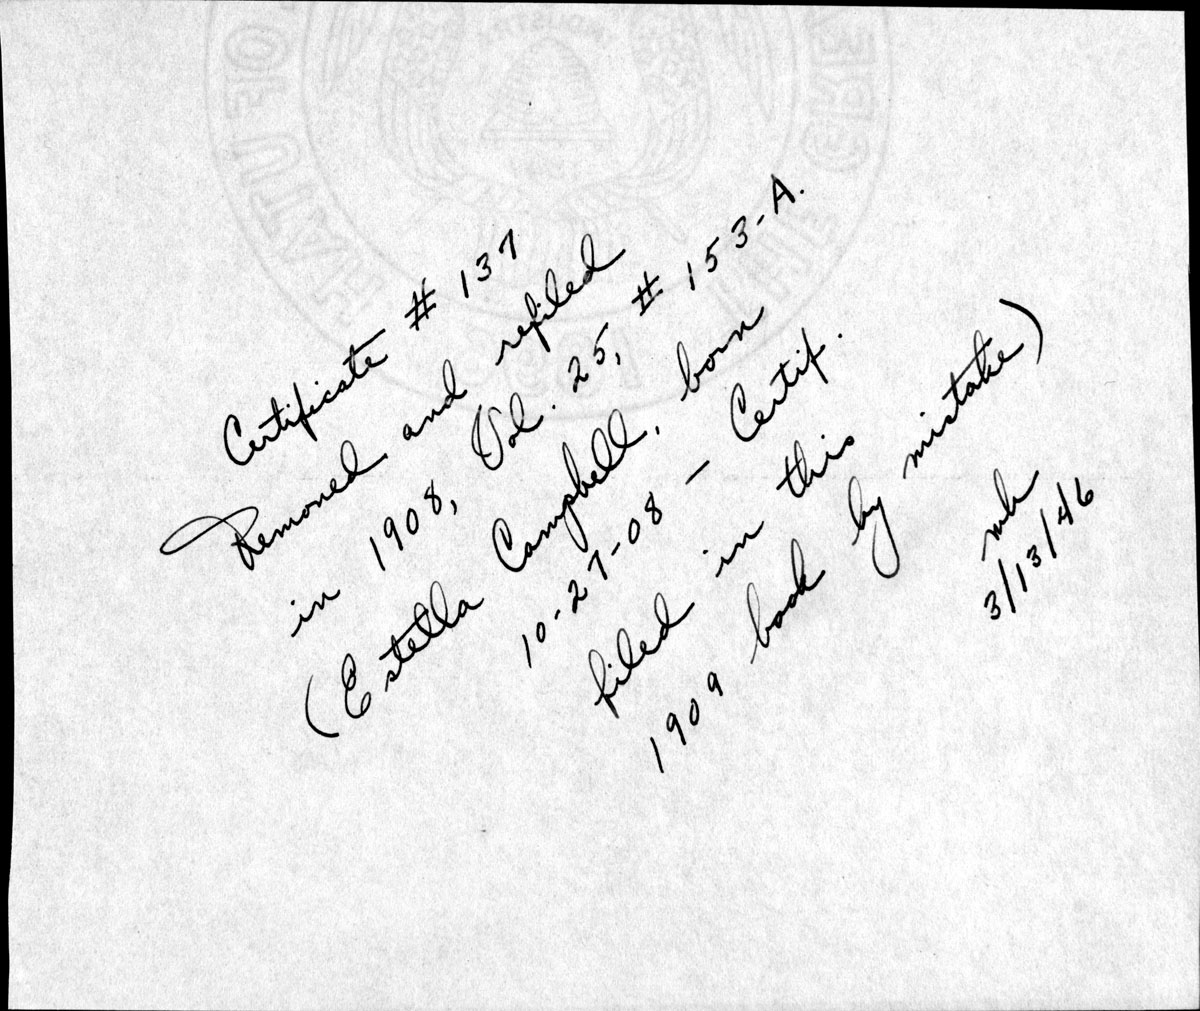 Certificate # 137
Removed and refiled
in 1908, Vol. 25, # 153-A.
(Estella Campbell, born
10-27-08 - Certif.
filed in this
1909 book by mistake)
mh
3/13/46